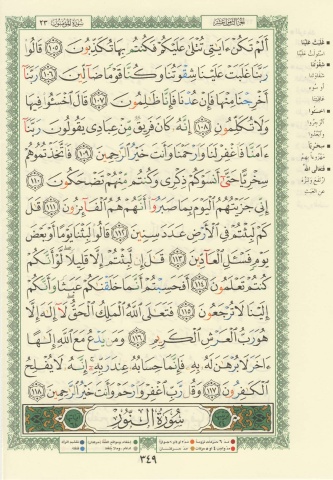 الجزء الثامن عشر
٢٣
سورة المؤمنون
أَلَمْ تَكُنْ ءَايَٰتِي تُتْلَىٰ عَلَيْكُمْ فَكُنتُم بِهَا تُكَذِّبُونَ ١٠٥ قَالُوا۟
رَبَّنَا غَلَبَتْ عَلَيْنَا شِقْوَتُنَا وَكُنَّا قَوْمًا ضَآلِّينَ ١٠٦ رَبَّنَآ
أَخْرِجْنَا مِنْهَا فَإِنْ عُدْنَا فَإِنَّا ظَٰلِمُونَ ١٠٧ قَالَ ٱخْسَـُٔوا۟ فِيهَا
وَلَا تُكَلِّمُونِ ١٠٨ إِنَّهُۥ كَانَ فَرِيقٌ مِّنْ عِبَادِي يَقُولُونَ رَبَّنَآ
ءَامَنَّا فَٱغْفِرْ لَنَا وَٱرْحَمْنَا وَأَنتَ خَيْرُ ٱلرَّٰحِمِينَ ١٠٩ فَٱتَّخَذْتُمُوهُمْ
سِخْرِيًّا حَتَّىٰٓ أَنسَوْكُمْ ذِكْرِي وَكُنتُم مِّنْهُمْ تَضْحَكُونَ ١١٠
إِنِّي جَزَيْتُهُمُ ٱلْيَوْمَ بِمَا صَبَرُوٓا۟ أَنَّهُمْ هُمُ ٱلْفَآئِزُونَ ١١١ قَٰلَ
كَمْ لَبِثْتُمْ فِي ٱلْأَرْضِ عَدَدَ سِنِينَ ١١٢ قَالُوا۟ لَبِثْنَا يَوْمًا أَوْ بَعْضَ
يَوْمٍ فَسْـَٔلِ ٱلْعَآدِّينَ ١١٣ قَٰلَ إِن لَّبِثْتُمْ إِلَّا قَلِيلًا لَّوْ أَنَّكُمْ
كُنتُمْ تَعْلَمُونَ ١١٤ أَفَحَسِبْتُمْ أَنَّمَا خَلَقْنَٰكُمْ عَبَثًا وَأَنَّكُمْ
إِلَيْنَا لَا تُرْجَعُونَ ١١٥ فَتَعَٰلَى ٱللَّهُ ٱلْمَلِكُ ٱلْحَقُّ لَآ إِلَٰهَ إِلَّا
هُوَ رَبُّ ٱلْعَرْشِ ٱلْكَرِيمِ ١١٦ وَمَن يَدْعُ مَعَ ٱللَّهِ إِلَٰهًا
ءَاخَرَ لَا بُرْهَٰنَ لَهُۥ بِهِۦ فَإِنَّمَا حِسَابُهُۥ عِندَ رَبِّهِۦٓ إِنَّهُۥ لَا يُفْلِحُ
ٱلْكَٰفِرُونَ ١١٧ وَقُل رَّبِّ ٱغْفِرْ وَٱرْحَمْ وَأَنتَ خَيْرُ ٱلرَّٰحِمِينَ ١١٨
سُورَةُ النُّورِ
غلبت علينا
شقوتنا
اخسئوا
سخريا
فتعالى الله
٣٤٩